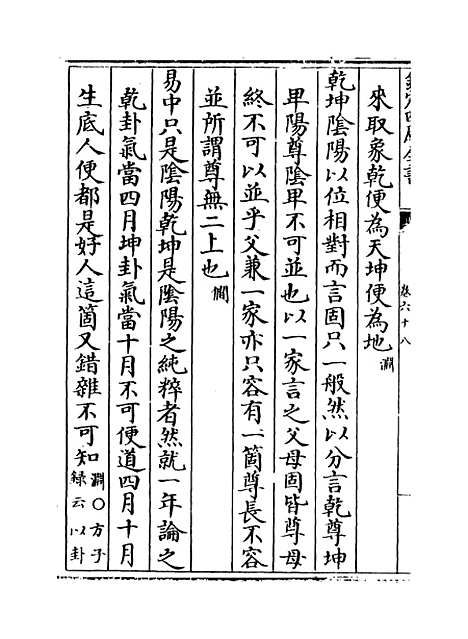 欽定四庫全書
卷六十八
來取象乾便為天坤便為地 淵
乾坤陰陽以位相對而言固只一般然以分言乾尊坤
卑陽尊陰卑不可並也以一家言之父母固皆尊母
終不可以並乎父兼一家亦只容有一箇尊長不容
並所謂尊無二上也 僩
易中只是陰陽乾坤是陰陽之純粹者然就一年論之
乾卦氣當四月坤卦氣當十月不可便道四月十月
生底人便都是好人這箇又錯雜不可知 淵○方子
錄云以卦